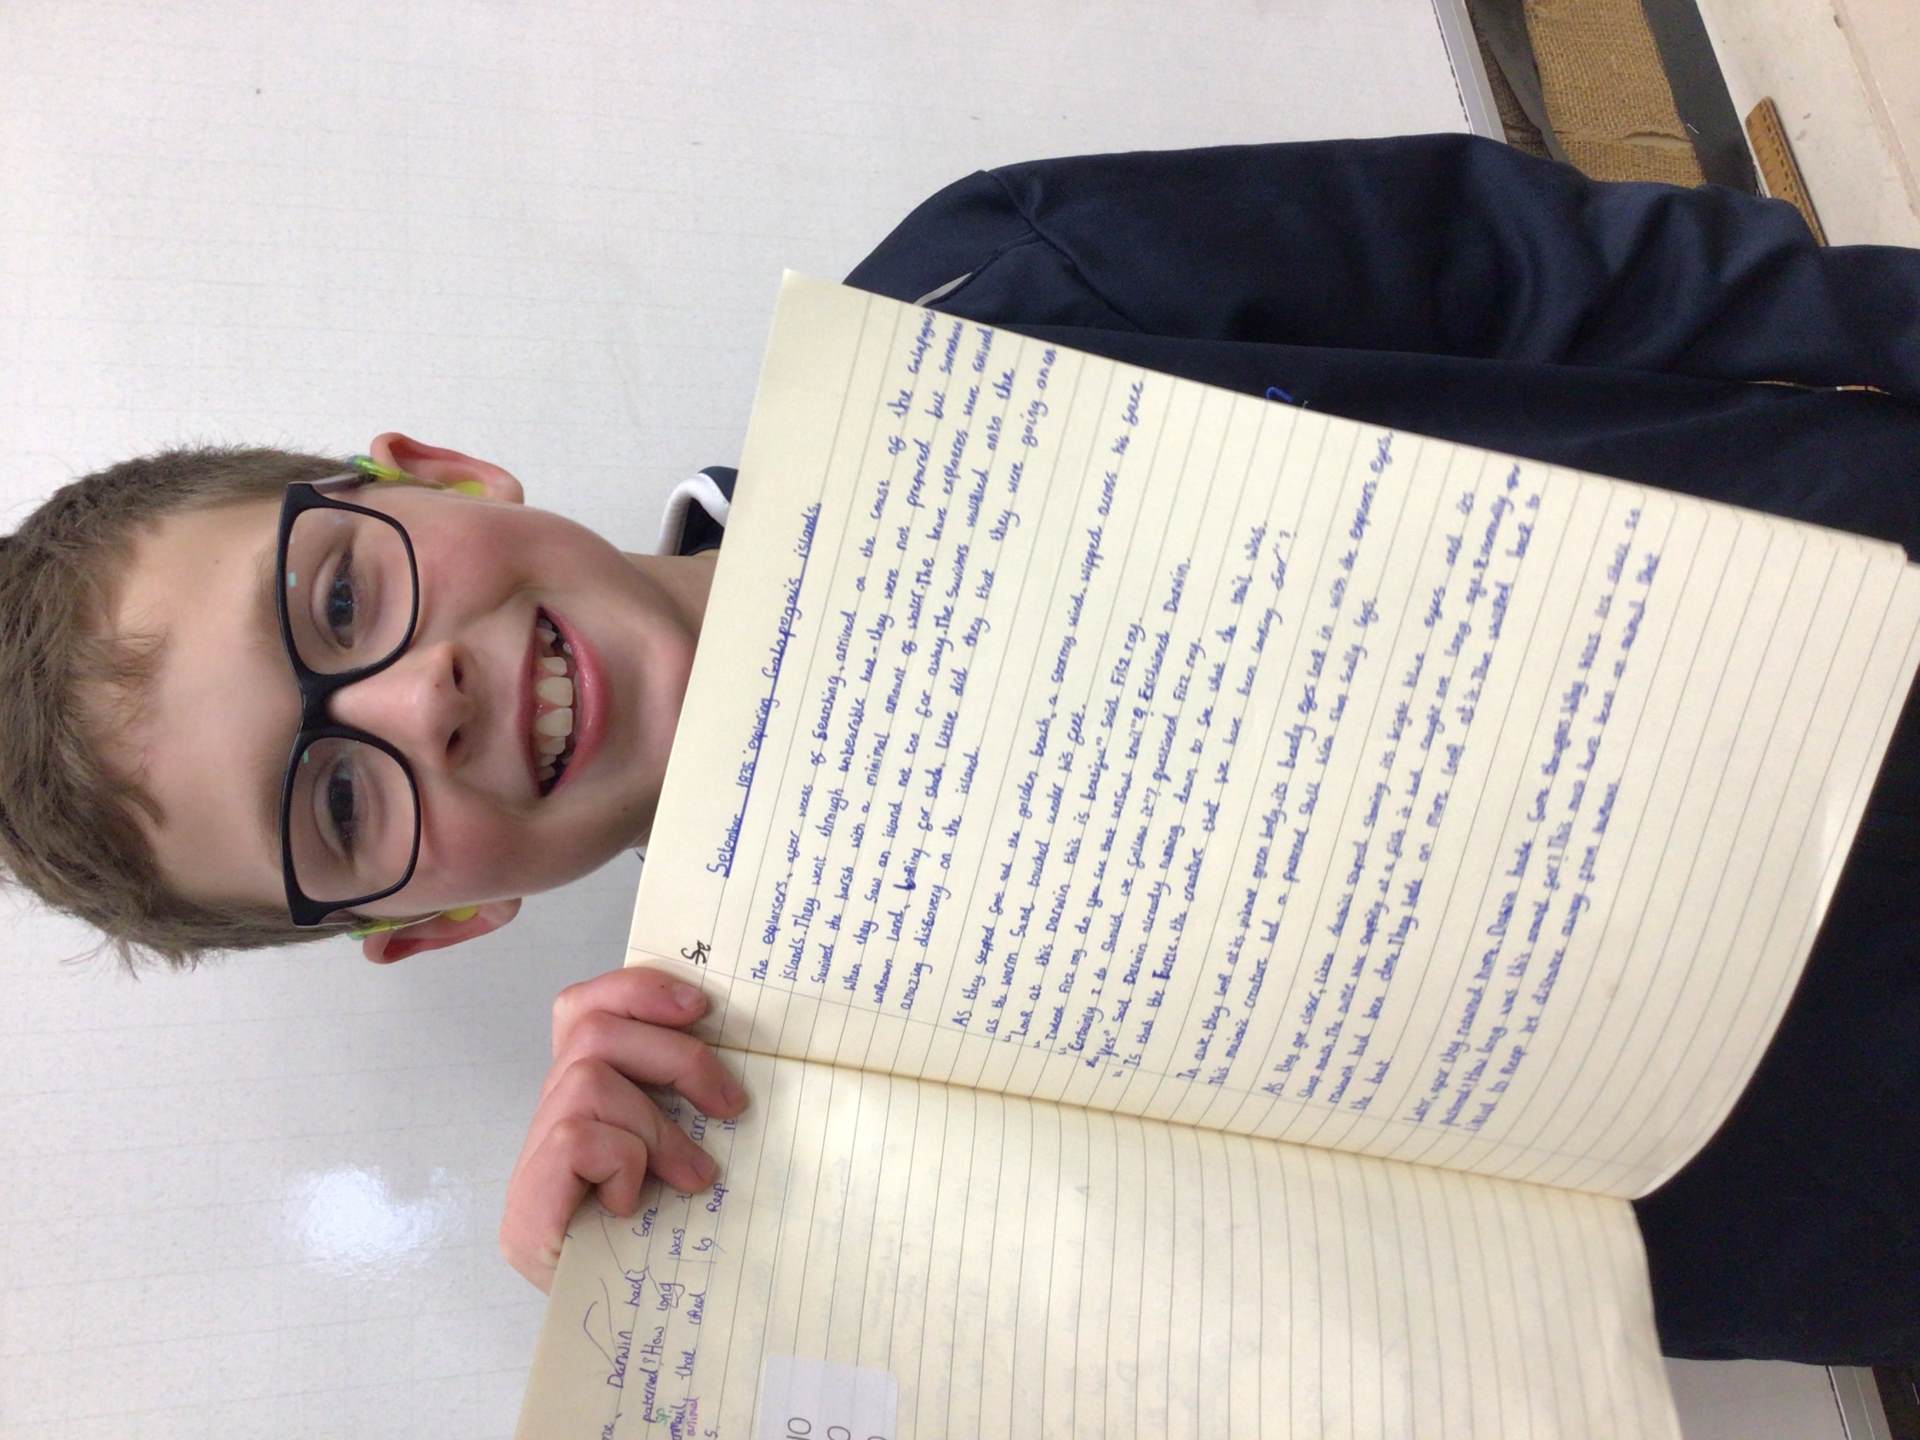 Setember 1835 exploring Galapegais islands.
The explorsers, after weeks of searching, arrived on the coast of the Galapogais
islands. They went through unbearable heat - they were not prepared but somehow
Suvived the harsh with a minimal amount of water. The brave explorers were relived
when they saw an island not too far away. The Suvivors walked onto the
unknown land, looking for shade, little did they that they were going on an
amazing discovery on the island.
As they stepped foot ont the golden beach, a stormy wind wipped across his face
as the warm Sand touched under his feet.
"Look at this Darwin this is beatiful" said Fitz roy.
"Indeed Fitz roy do you see that unusual trail"? Exclaimed Darwin.
"Certainly I do Should we follow it"? questioned Fitz roy.
"Yes" said Darwin already running down to see what the trail was.
"Is that the the creature that we have been looking for"?
In awe, they look at its pinkest green body, its beady eyes lock in with the explorers eyes.
This majaic creature had a paterned Shell with Sharp scally legs.
As they got closer, little details shined its bright blue eyes and its
Sharp mouth. The was at a fish it had caught not long ago.
mission had been done. They took on more look at it. The walked back to
the boat
Later, after they roawed home, Darwin had Some thoughts why was its Shell so
paterned? How long was this around for? This must have been an animal that
liked to keep its distance away from humans
me, Darwin had Some
paterned? How long was
animal that liked to keep